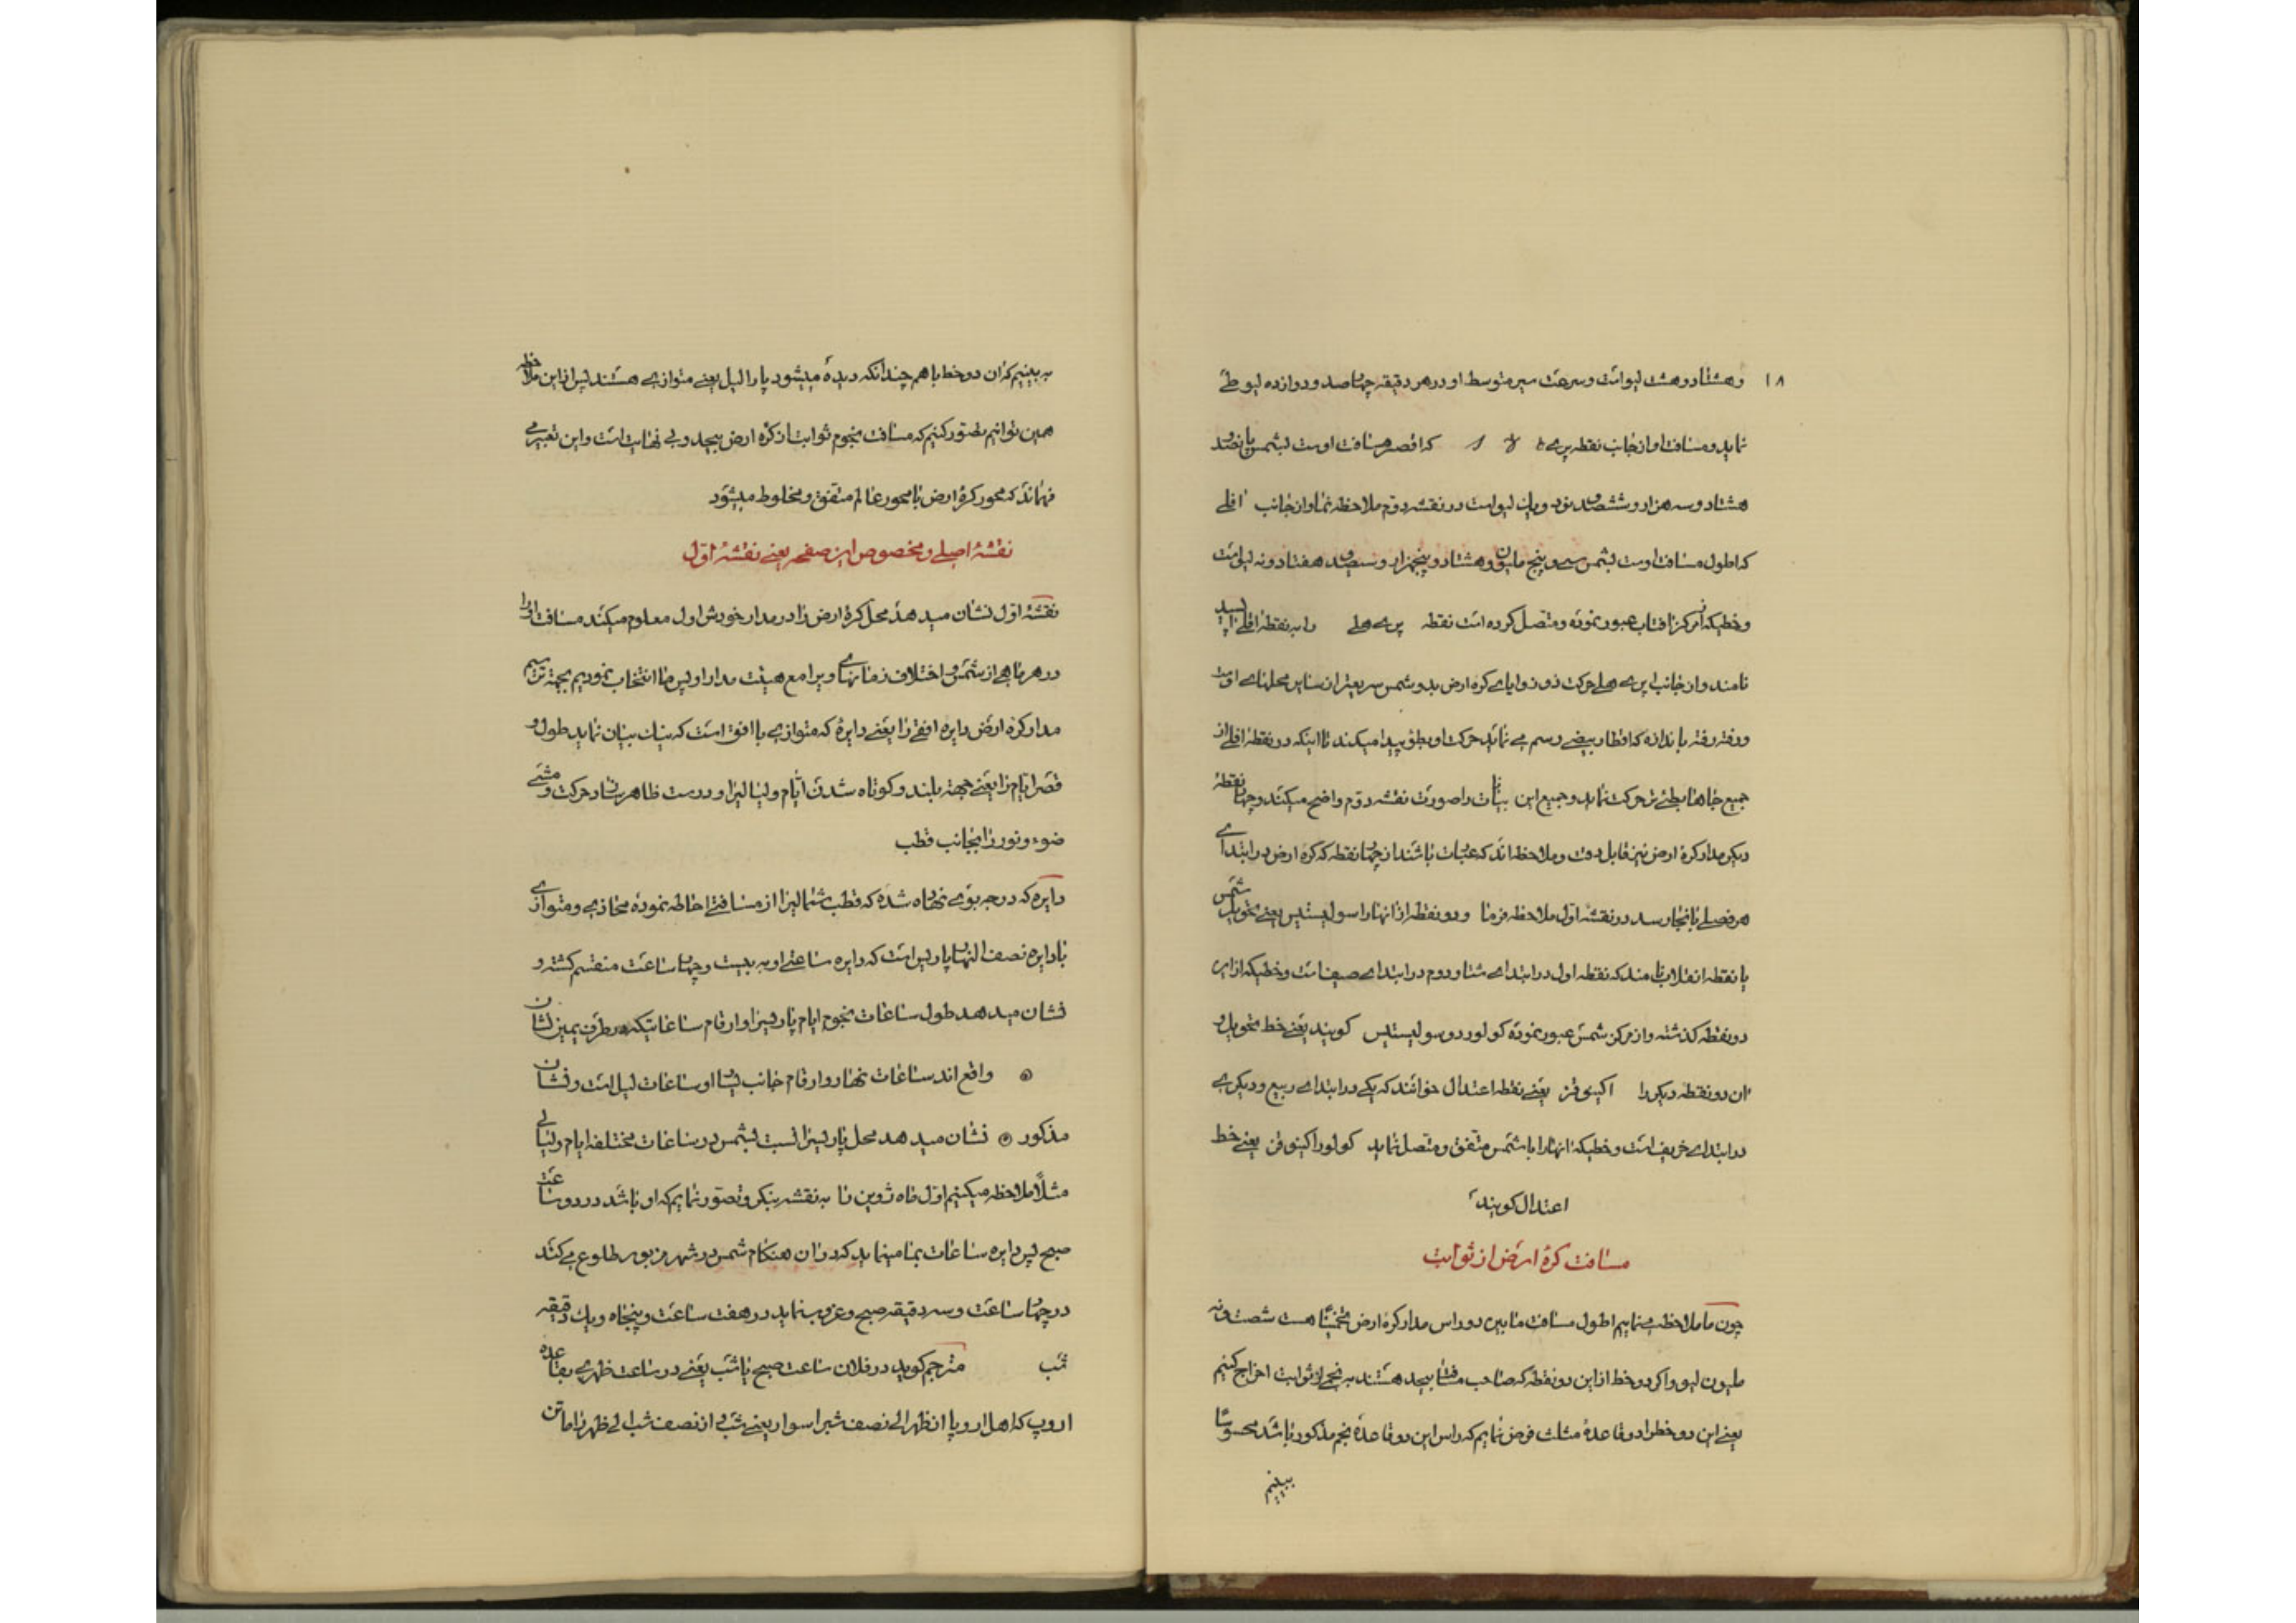 ۱۸
وهشتاد و هشت لیو است و سرعت سیر متوسط او در هر دقیقه چهارصد و دوازده لیو طی
نماید و مسافت او از جانب نقطه پری که اقصر مسافت اوست بشمس پانصد و
هشتاد و سه هزار و ششصد و نود و یك لیو است در نقشه دوم ملاحظه نما و از جانب افلی
که اطول مسافت اوست بشمس سی و پنج ملیون و هشتاد و پنجهزار و سیصد و هفتاد و نه لیو است
و خطیکه از مرکز افتاب عبور نموده و متصل کرده است نقطه پری هلی را به نقطه افلی اپسید
نامند و از جانب پری هلی حرکت ذو زوایای کره ارض بدور شمس سریعتر از سایر محلهای اوست
و رفته رفته باندازه که اقطار بیضی رسم می نماید حرکت او بطؤ پیدا میکند تا اینکه در نقطه افلی از
جمیع جاها بطئی تر حرکت نماید و جمیع این بیانات را صورت نقشه دوم واضح میکند و چهار نقطهٔ
دیکر مدار کرهٔ ارض نیز قابل دقت و ملاحظه اند که عبارت باشند از چهار نقطه که کره ارض در ابتدای
هر فصلی بانجا رسد در نقشه اول ملاحظه فرما و دو نقطه از انها را سولیستیس یعنی تحویل شمس
یا نقطه انقلاب نامند که نقطه اول در ابتدای شتا و دوم در ابتدای صیف است و خطیکه از این
دو نقطه کذشته و از مرکز شمس عبور نموده کولور دو سولیستیس کویند یعنی خط تحویل و
ان دو نقطه دیکر را اکینوقز یعنی نقطه اعتدال خوانند که یکی در ابتدای ربیع و دیکری
در ابتدای خریف است و خطیکه انها را با شمس متفق و متصل نماید کولور اکینوقن یعنی خط
اعتدال کویند
مسافت کرهٔ ارض از ثوابت
چون ما ملاحظه می نماییم اطول مسافت مابین دو راس مدار کرهٔ ارض تخمیناً هست شصت و نه
ملیون لیو و اکر دو خط از این دو نقطه که صاحب مسافت بیحد هستند به نجمی از ثوابت اخراج کنیم
یعنی این دو خط را دو قاعدهٔ مثلث فرض نمایم که راس این دو قاعدهٔ نجم مذکور باشد محسوسا
ببینیم
به بینیم که ان دو خط با هم چندانکه دیده میشود پارالیل یعنی متوازی هستند پس از این ملاحظه
همین توانیم تصور کنیم که مسافت نجوم ثوابت از کرهٔ ارض بیحد و بی نهایت است و این تعبیر می
فهماند که محور کرهٔ ارض با محور عالم متفق و مخلوط میشود
نقشهٔ اصلی و مخصوص این صفحه یعنی نقشهٔ اوّل
نقشهٔ اوّل نشان میدهد محل کرهٔ ارض را در مدار خودش اول معلوم میکند مسافت او را
در هر ماهی از شمس و اختلاف زمانهای و یرا مع هیئت مدار او پس ما انتخاب نمودیم بجهة ترسیم
مدار کره ارض دایره افقی را یعنی دایرهٔ که متوازی با افق است که نیك بیان نماید طول و
قصر ایام را یعنی جهة بلند و کوتاه شدن ایّام و لیالیرا و درست ظاهر سازد حرکت و مشی
ضوء و نور را بجانب قطب
دایرهٔ که درجه بوی نهاده شده که قطب شمالیرا از مسافتی احاطه نموده محاذی و متوازی
با دایره نصف النهار پاریس است که دایره ساعتی او به بیست و چهار ساعت منقسم کشته و
نشان میدهد طول ساعات نجوم ایام پاریسرا و ارقام ساعاتیکه در طرف یمین نشان
⊙ واقع اند ساعات نهار و ارقام جانب یسار او ساعات لیل است و نشان
مذکور ⊙ نشان میدهد محل پاریسرا نسبت بشمس در ساعات مختلفه ایام و لیالی
مثلاً ملاحظه میکنیم اوّل ماه ژوین را به نقشه بنکر و تصوّر نمایم که او باشد در دو ساعت
صبح پس دایره ساعات بما مینماید که در ان هنکام شمس در شهر مزبور طلوع می کند
در چهار ساعت و سه دقیقه صبح و غروب نماید در هفت ساعت و پنجاه و یك دقیقه
شب مترجم کوید در فلان ساعت صبح یا شب یعنی در ساعت ظهری بقاعده
اروپ که اهل اروپا از ظهر الی نصف شبرا سوار یعنی شب و از نصف شب الی ظهر را ماتن